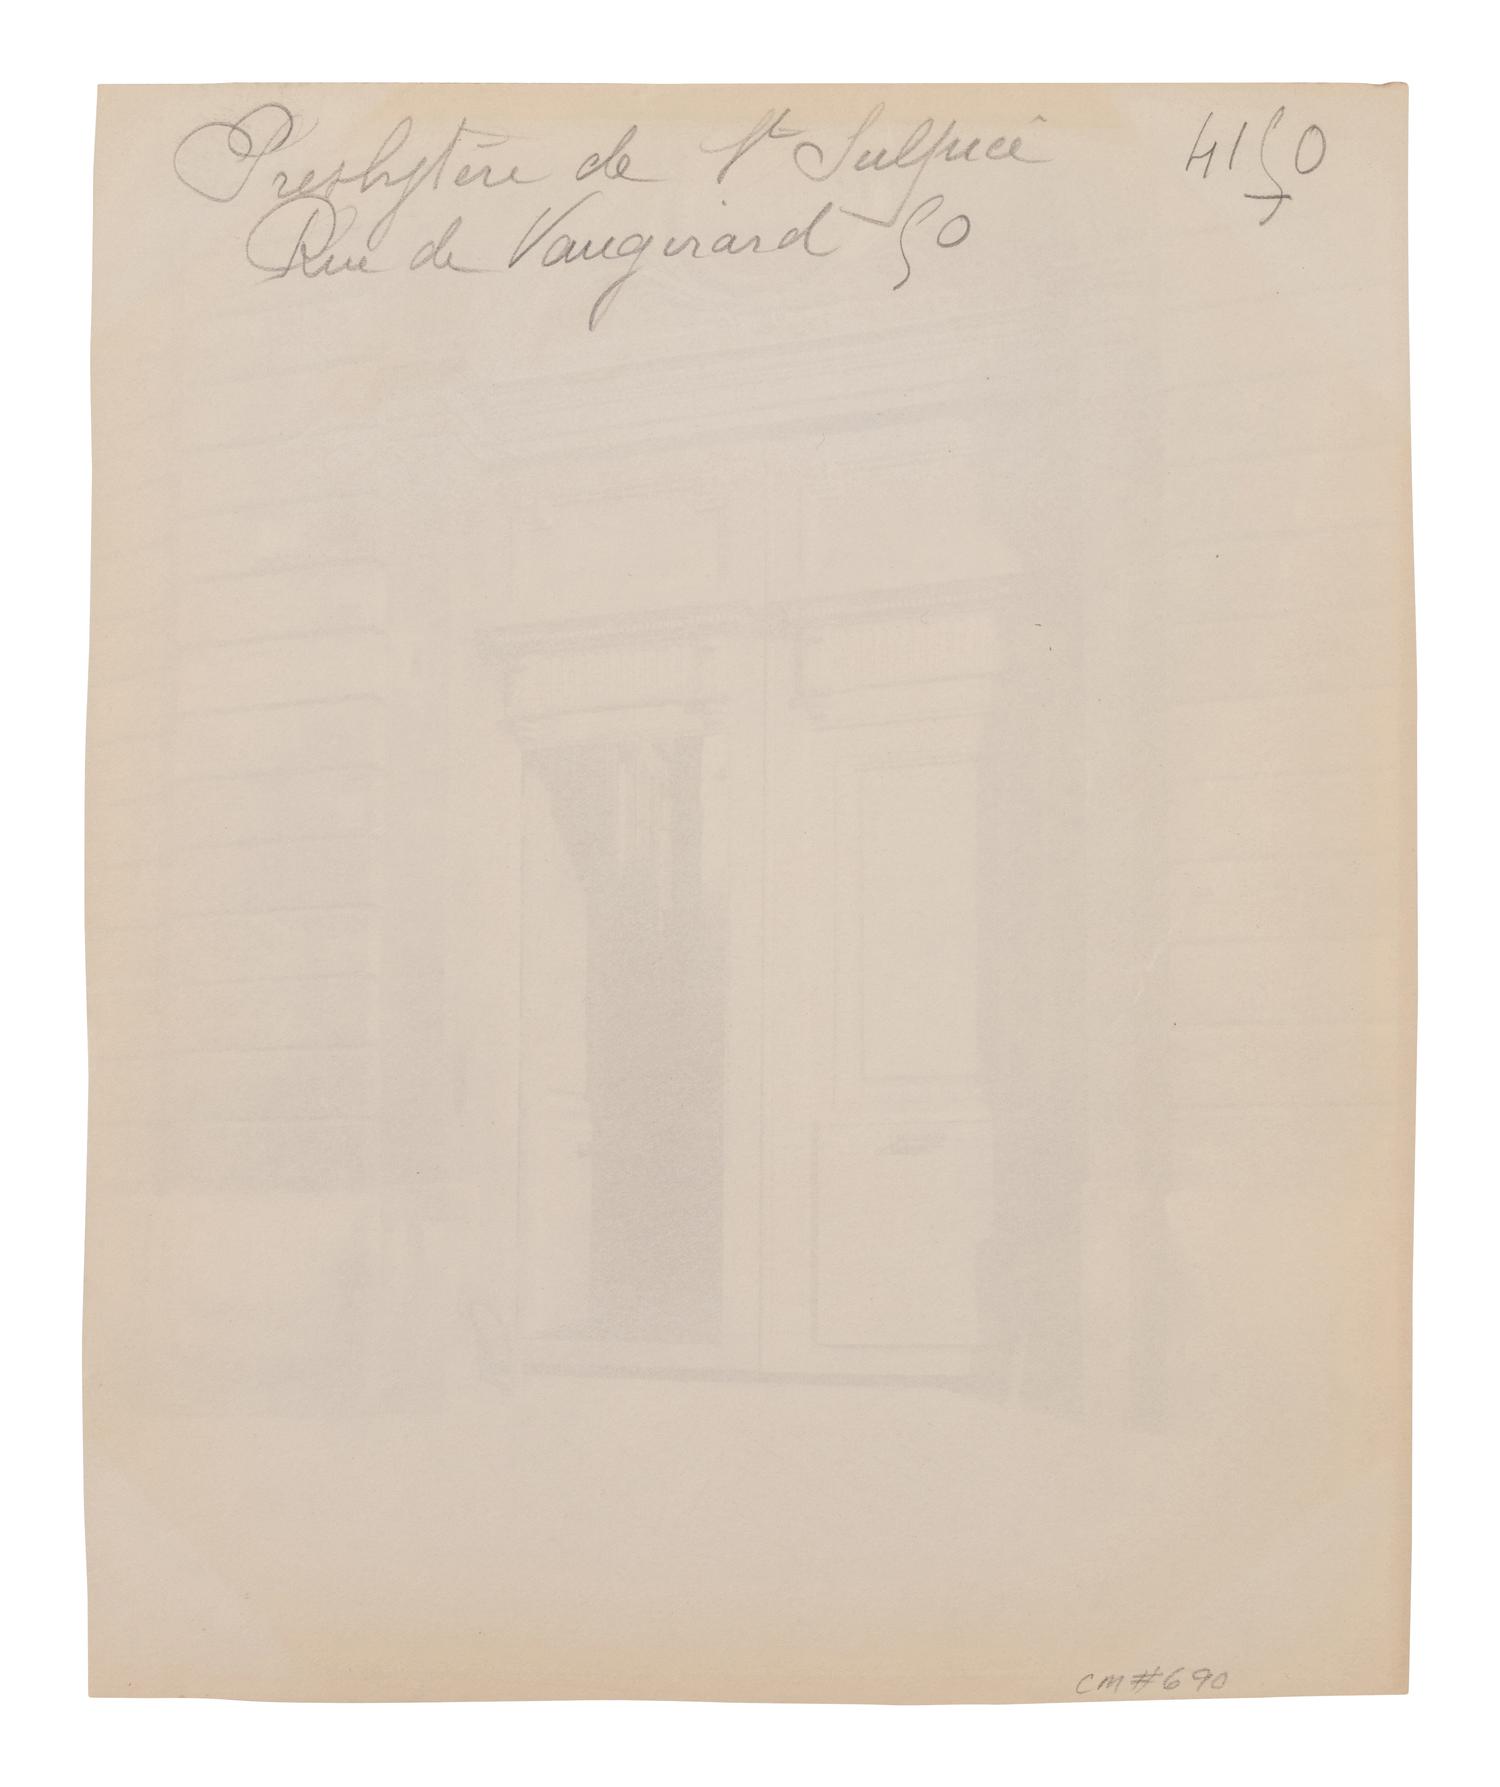 Presbytère de St Sulpice 4150
Rue de Vaugirard 50
CM#690